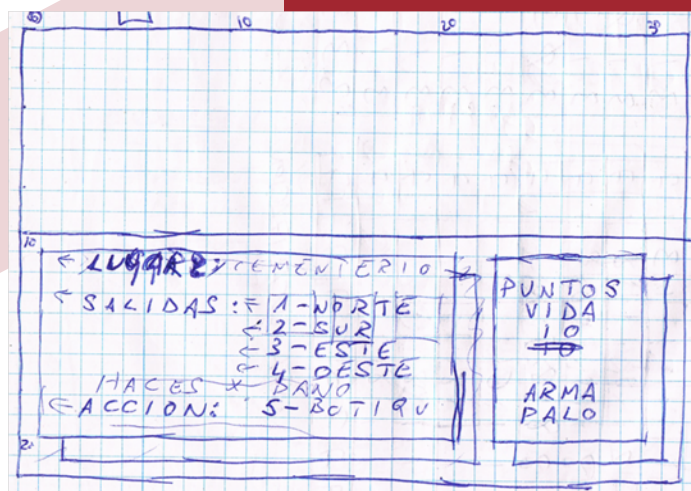 0 10 20 30
10
LUGAR: CEMENTERIO
SALIDAS: 1-NORTE
2-SUR
3-ESTE
4-OESTE
HACES X DANO
ACCION: 5-BOTIQU
PUNTOS
VIDA
10
10
ARMA
PALO